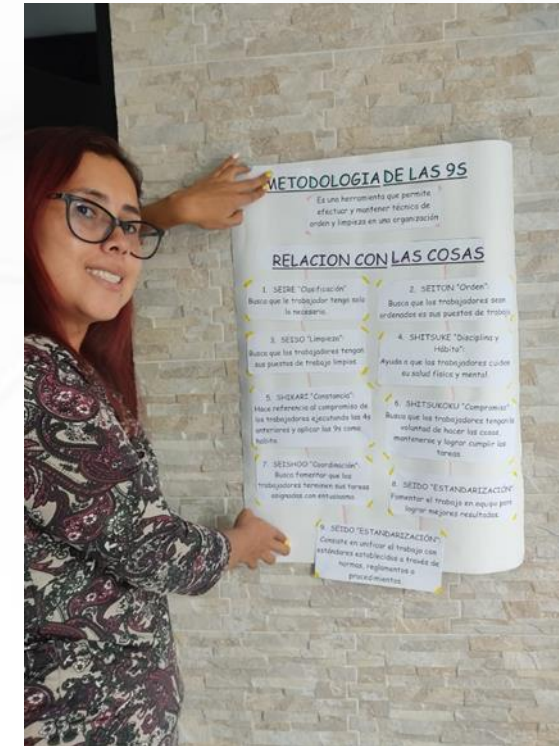 METODOLOGIA DE LAS 9S
Es una herramienta que permite
efectuar y mantener técnica de
orden y limpieza en una organización
RELACION CON LAS COSAS
1. SEIRE "Clasificación"
Busca que le trabajador tenga solo
lo necesario.
2. SEITON. "Orden":
Busca que los trabajadores sean
ordenados es sus puestos de trabajo
3. SEISO "Limpieza":
Busca que los trabajadores tengan
sus puestos de trabajo limpios.
4. SHITSUKE "Disciplina y
Hábito":
Ayuda a que los trabajadores cuiden
su salud física y mental.
5. SHIKARI "Constancia":
Hace referencia al compromiso de
los trabajadores ejecutando las 4s
anteriores y aplicar las 9s como
hábito.
6. SHITSUKOKU "Compromiso":
Busca que los trabajadores tengan la
voluntad de hacer las cosas,
mantenerse y lograr cumplir las
tareas.
7. SEISHOO "Coordinación":
Busca fomentar que los
trabajadores terminen sus tareas
asignadas con entusiasmo.
8. SEIDO "ESTANDARIZACIÓN"
Fomentar el trabajo en equipo para
lograr mejores resultados.
9. SEIDO "ESTANDARIZACIÓN":
Consiste en unificar el trabajo con
estándares establecidos a través de
normas, reglamentos o
procedimientos.